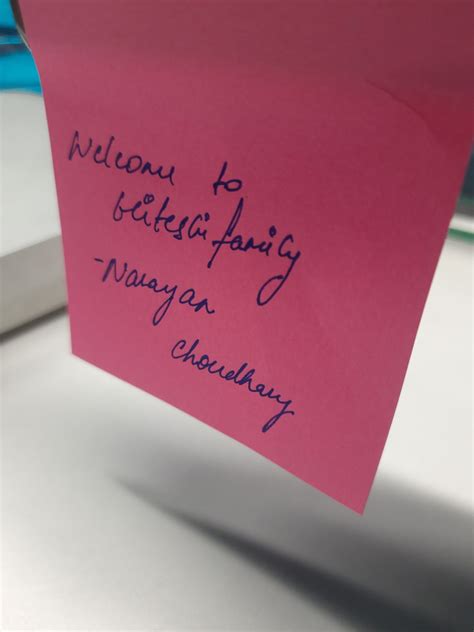 Welcome to
family
-Narayan
Choudhary